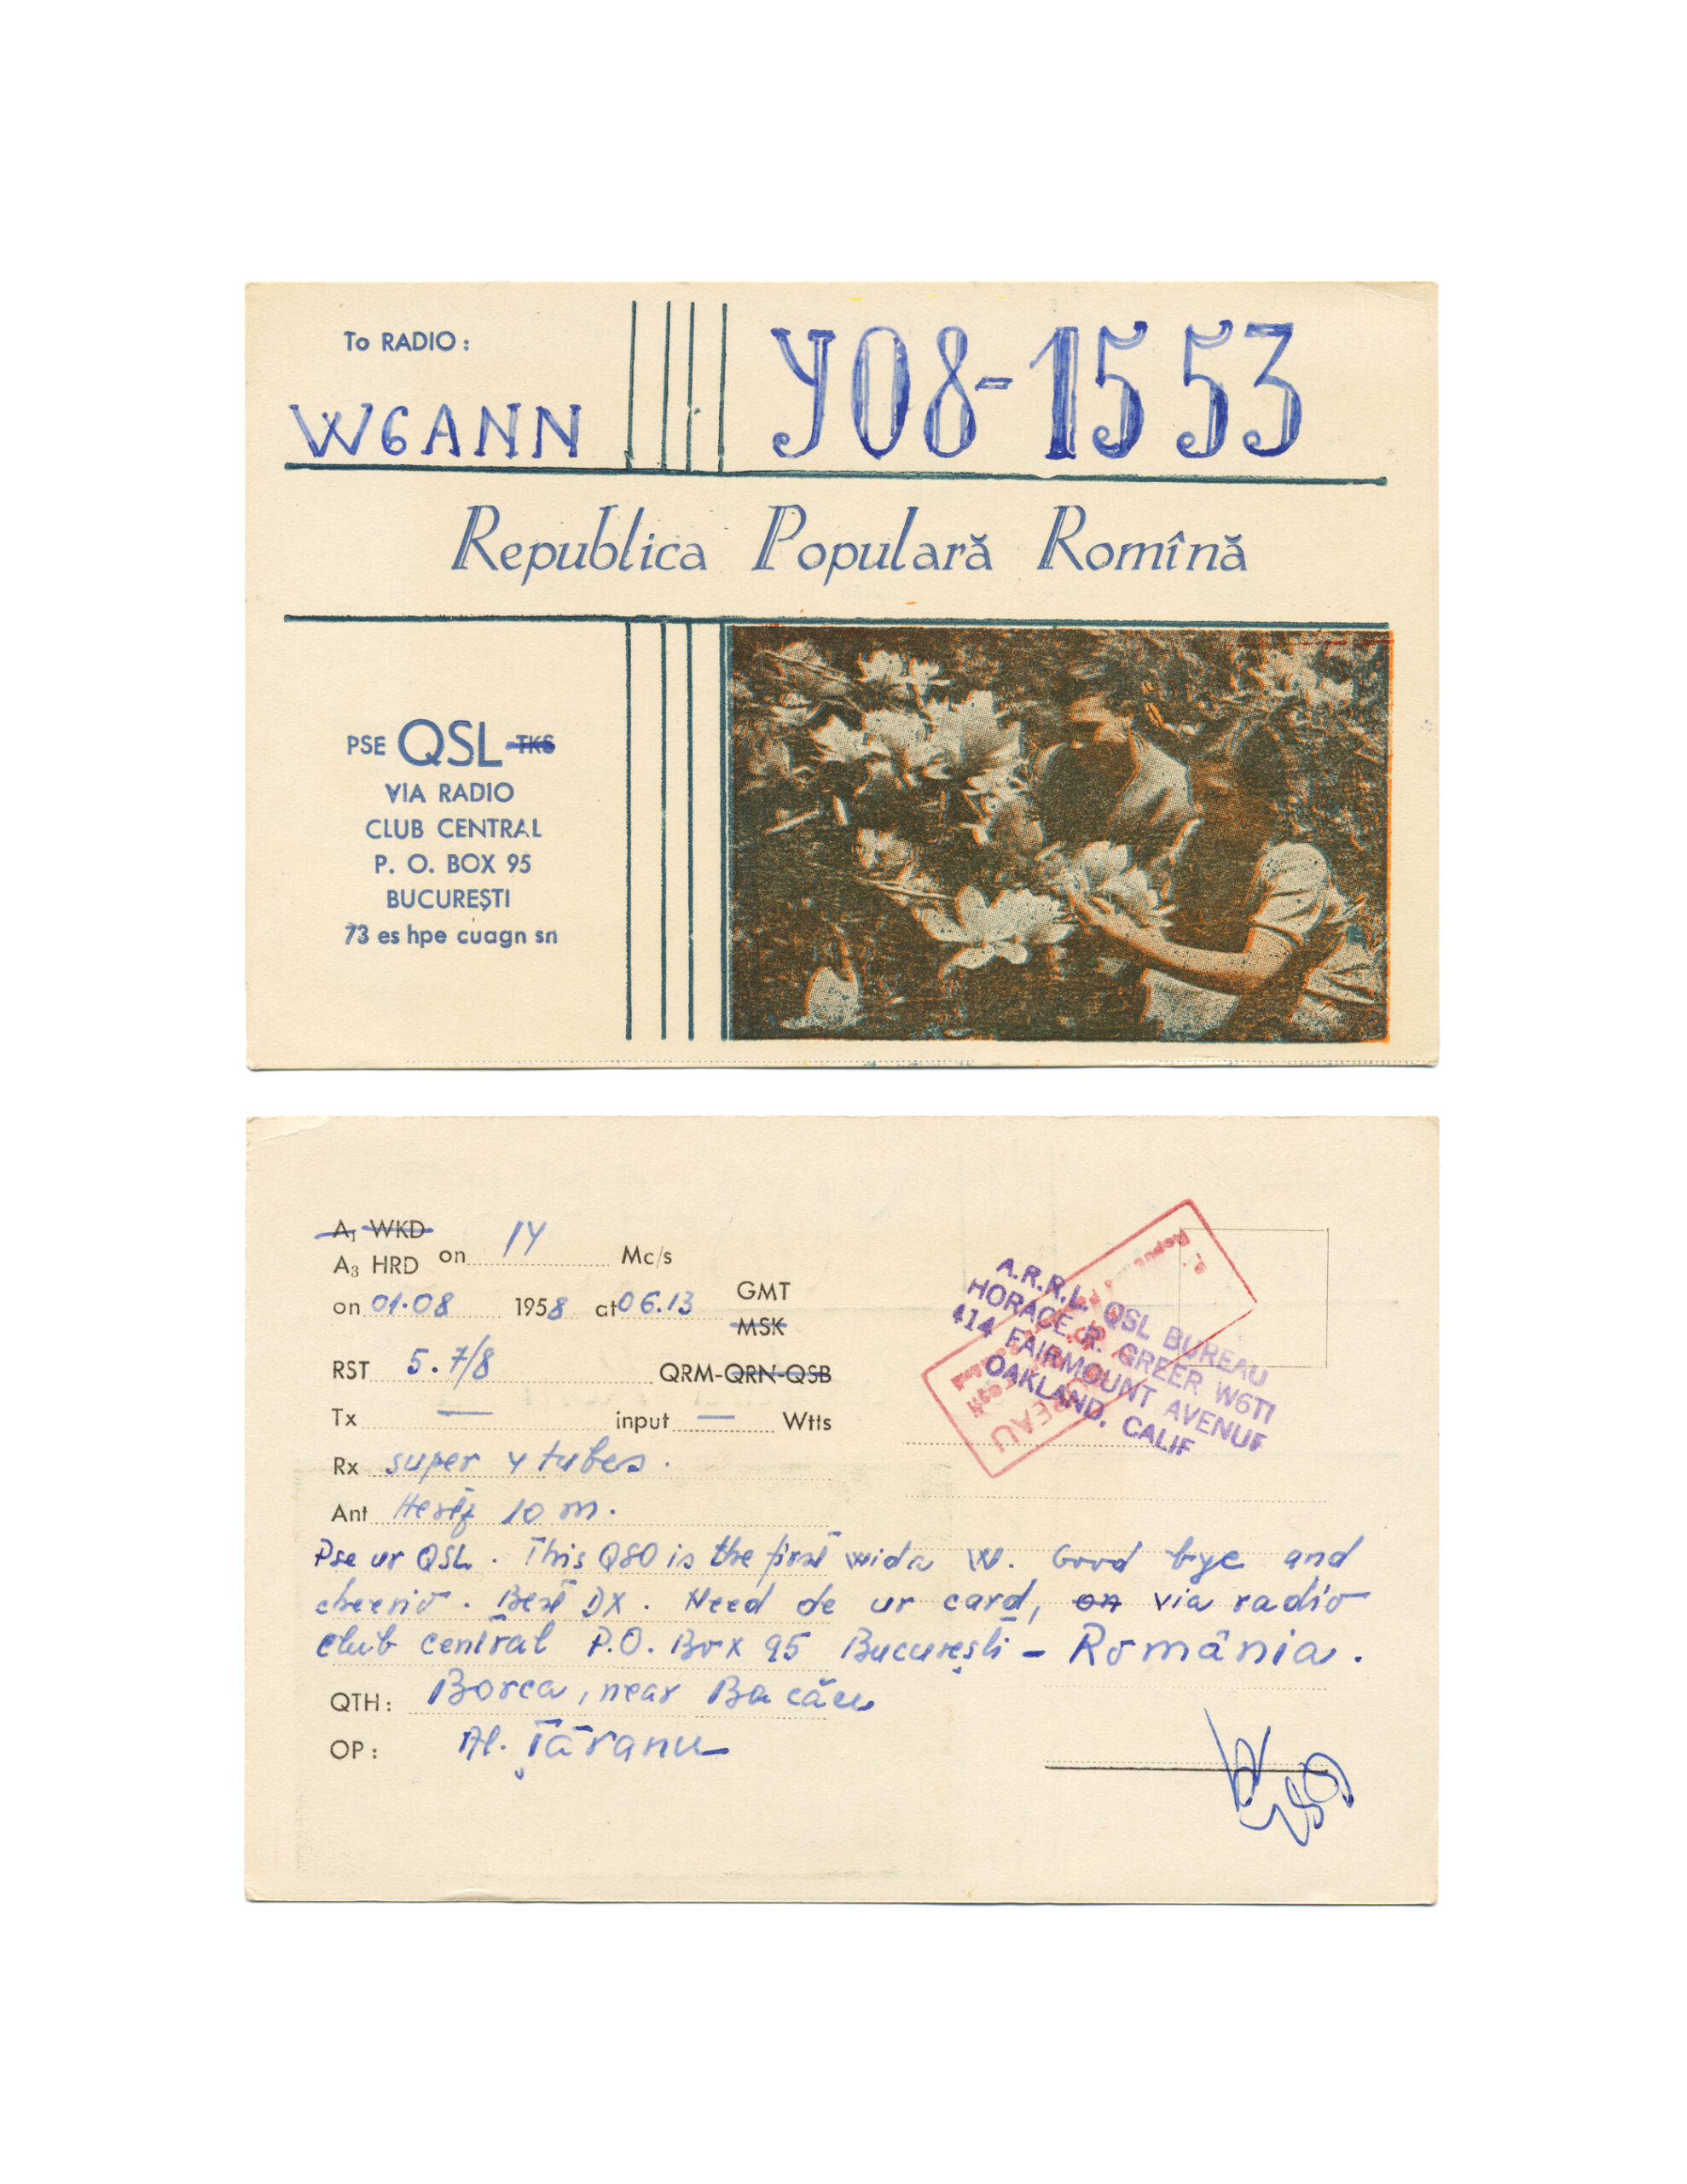 To RADIO:
W6ANN
YO8-1553
Republica Populară Romînă
PSE QSL TKS
VIA RADIO
CLUB CENTRAL
P. O. BOX 95
BUCUREŞTI
73 es hpe cuagn sn
A1 WKD
A3 HRD on 14 Mc/s
on 01.08 1958 at 06.13 GMT
MSK
RST 5.7/8 QRM-QRN-QSB
Tx — input — Wtts
Rx super 4 tubes.
Ant 10 m.
Pse ur QSL. This QSO is the first W. Good bye and
cheerio. Best DX. Need de ur card, on via radio
club central P.O. Box 95 Bucureşti - România.
QTH: Borca, near Bacău
OP: Al. Ţăranu
A.R.R.L. QSL BUREAU
HORACE R. GREER W6TI
414 FAIRMOUNT AVENUE
OAKLAND, CALIF